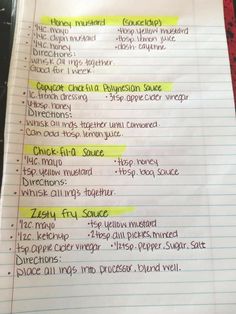 Honey mustard (sauce/dip)
• 1/4c. mayo • tbsp. yellow mustard
• 1/4c. dijon mustard • tbsp. lemon juice
• 1/4c. honey • dash cayenne
Directions:
• Whisk all ings together.
• Good for 1 week.
Copycat Chickfila Polynesian Sauce
• 1c. french dressing • 3tsp apple cider vinegar
• 4tbsp. honey
Directions:
• Whisk all ings together until combined.
• Can add tbsp. lemon juice.
Chick-fil-a Sauce
• 1/4c. mayo • tbsp. honey
• tsp. yellow mustard • tbsp. bbq sauce
Directions:
• Whisk all ings together.
Zesty Fry Sauce
• 1/2c. mayo • tsp yellow mustard
• 1/2c. ketchup • 2tbsp dill pickles, minced
• tsp apple cider vinegar • 1/2tsp. pepper, sugar, salt
Directions:
• place all ings into processor, blend well.